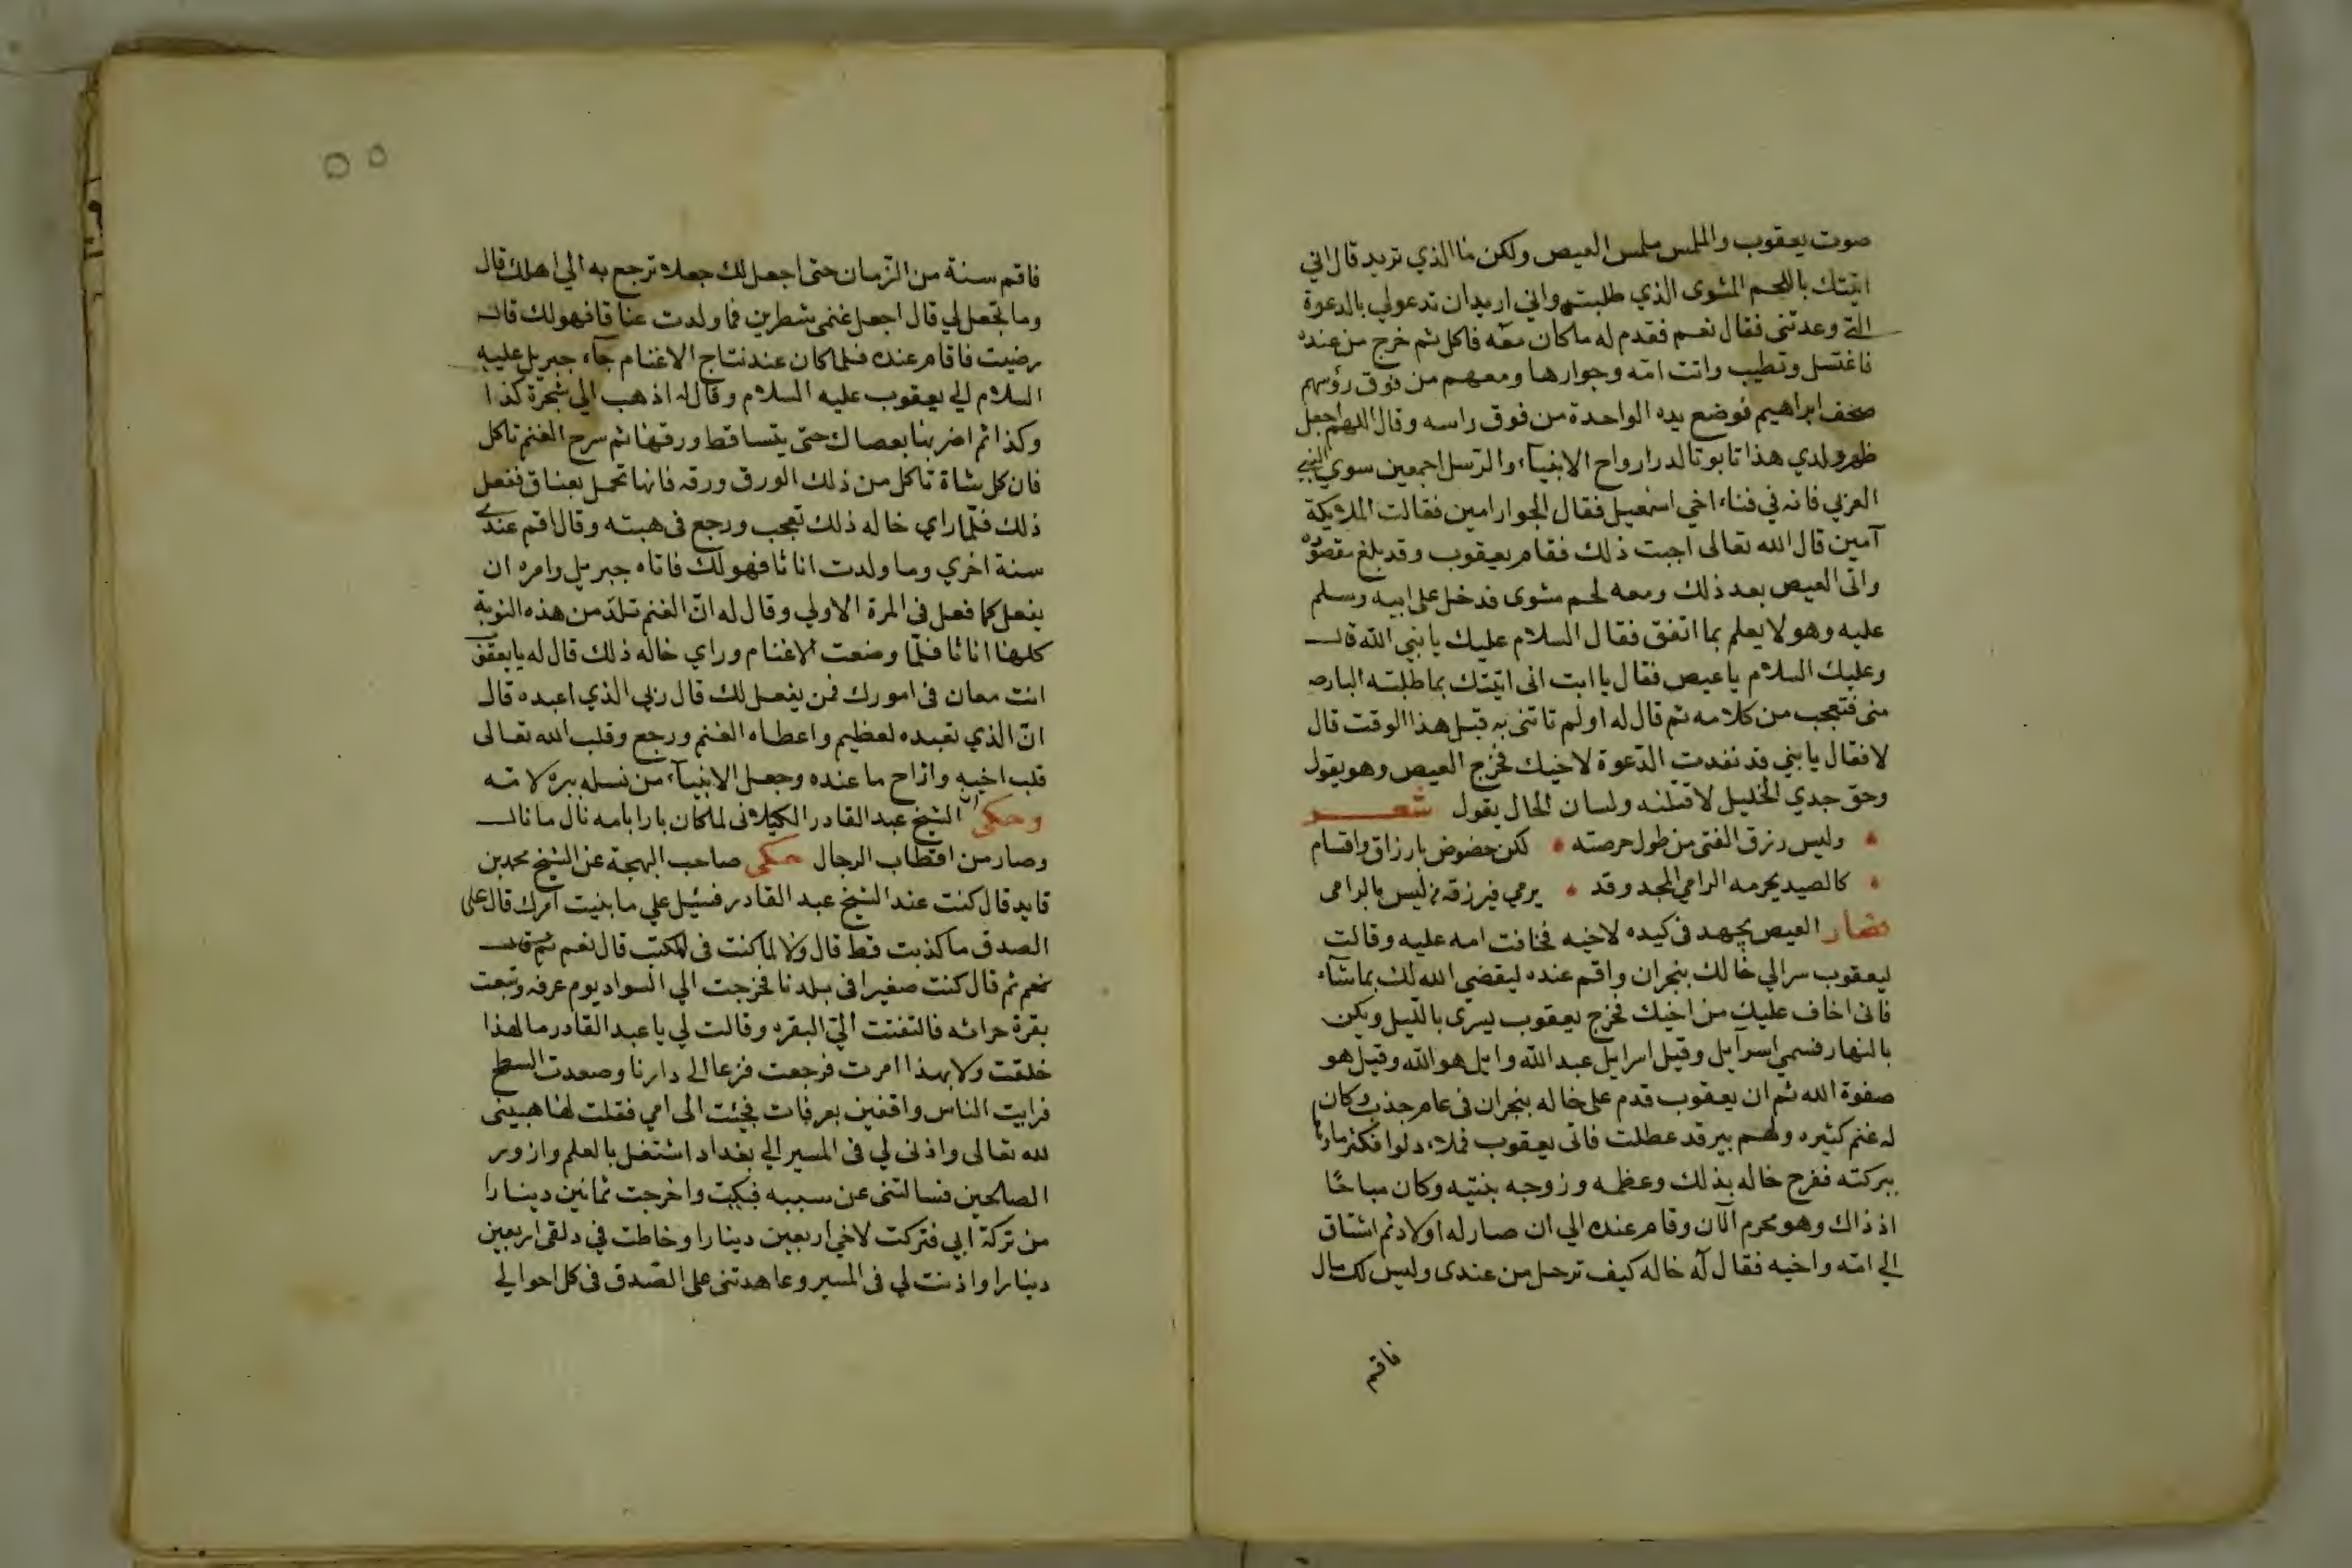 صوت يعقوب والملس ملمس العيص ولكن ما الذي تريد قال اني
اتيتك باللحم المشوى الذي طلبته واني اريد ان تدعولي بالدعوة
التي وعدتنى فقال نعم فقدم له ماكان معه فاكل ثم خرج من عنده
فاغتسل وتطيب واتت امّه وجوارها ومعهم من فوق رؤسهم
صحف ابراهيم فوضع يده الواحدة من فوق راسه وقال اللهم اجعل
ظهر ولدي هذا تابوتا لدرارواح الانبياء والرّسل اجمعين سوي النبي
العربي فانه في فناء اخي اسمعيل فقال الجوار امين فقالت الملايكة
آمين قال الله تعالى اجبت ذلك فقام يعقوب وقد بلغ مقصوده
واتى العيص بعد ذلك ومعه لحم مشوى فدخل على ابيه وسلم
عليه وهو لا يعلم بما اتفق فقال السلام عليك يا نبي الله قال
وعليك السلام يا عيص فقال يا ابت انى اتيتك بما طلبته البارحه
منى فتعجب من كلامه ثم قال له اولم تاتنى به قبل هذا الوقت قال
لا فقال يا بني قد نفدت الدّعوة لاخيك فخرج العيص وهو يقول
وحق جدي الخليل لاقتلنه ولسان الحال يقول شعر
وليس رزق الفتى من طول حرصته لكن حضوض بارزاق واقسام
كالصيد يحرمه الرامي المجد وقد يرمي فيرزقه من ليس بالرامى
فصار العيص يجهد فى كيده لاخيه فخافت امه عليه وقالت
ليعقوب سر الي خالك بنجران واقم عنده ليقضي الله لك بما شآء
فانى اخاف عليك من اخيك فخرج يعقوب يسرى بالليل ويكن
بالنهار فسمي اسرآيل وقيل اسرايل عبد الله وايل هو الله وقيل هو
صفوة الله ثم ان يعقوب قدم على خاله بنجران فى عام جذب وكان
له غنم كثيره ولهم بير قد عطلت فاتى يعقوب فملاء دلوا فكثر ماؤها
ببركته ففرح خاله بذلك وعظمه وزوجه بنتيه وكان مباحًا
اذ ذاك وهو محرم الآن وقام عنده الي ان صار له اولاد ثم اشتاق
الي امّه واخيه فقال له خاله كيف ترحل من عندى وليس لك مال
فاقم
٥٥
فاقم سنة من الزّمان حتى اجعل لك جعلا ترجع به الي اهلك قال
وما تجعل لي قال اجعل غنمى شطرين فما ولدت عناقا فهو لك قال
رضيت فاقام عنده فلما كان عند نتاج الاغنام جآء جبريل عليه
السلام الي يعقوب عليه السلام وقال له اذهب الي شجرة كذا
وكذا ثم اضربها بعصاك حتى يتساقط ورقها ثم سرح الغنم تاكل
فان كل شاة تاكل من ذلك الورق ورقه فانها تحمل بعناق ففعل
ذلك فلمّا راي خاله ذلك تعجب ورجع فى هبته وقال اقم عندي
سنة اخري وما ولدت اناثا فهو لك فاتاه جبريل وامره ان
يفعل كما فعل فى المرة الاولي وقال له انّ الغنم تلد من هذه النوبة
كلها اناثا فلمّا وضعت الاغنام وراي خاله ذلك قال له يا يعقوب
انت معان فى امورك فمن يفعل لك قال ربي الذي اعبده قال
انّ الذي تعبده لعظيم واعطاه الغنم ورجع وقلب الله تعالى
قلب اخيه وازاح ما عنده وجعل الانبيآء من نسله ببره لامّه
وحكى ان الشيخ عبد القادر الكيلانى لما كان بارا بامه نال ما نال
وصار من اقطاب الرجال حكى صاحب البهجة عن الشيخ محمد بن
قايد قال كنت عند الشيخ عبد القادر فسئيل علي ما بنيت امرك قال على
الصدق ما كذبت قط قال ولا لما كنت فى المكتب قال نعم ثم قال
نعم ثم قال كنت صغيرا فى بلدنا فخرجت الي السواد يوم عرفه وتبعت
بقرة حراثه فالتفتت الىّ البقره وقالت لي يا عبد القادر ما لهذا
خلقت ولا بهذا امرت فرجعت فزعا الى دارنا وصعدت السطح
فرايت الناس واقفين بعرفات فجيئت الى امي فقلت لها هبينى
لله تعالى واذنى لي فى المسير الي بغداد اشتغل بالعلم وازور
الصالحين فسالتنى عن سببه فبكيت واخرجت ثمانين دينارا
من تركة ابي فتركت لاخي اربعين دينارا وخاطت في دلقى اربعين
دينارا واذنت لي فى المسير وعاهدتنى على الصّدق فى كل احوالي